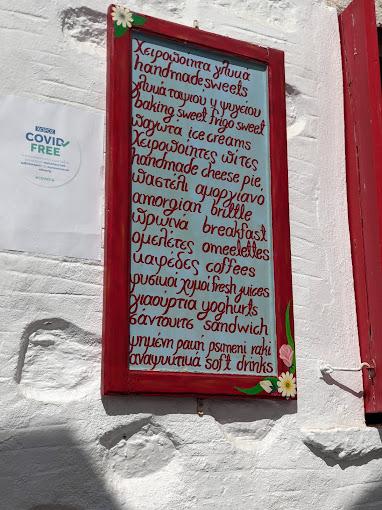 χειροποιητα γλυκα
handmade sweets
γλυκά ταψιου η ψυγείου
baking sweet frigo sweet
παγωτα ice creams
χειροποιητες πιτες
handmade cheese pie,
παστέλι αμοργιανο
amorgian brittle
πρωινα breakfast
ομελέτες omeelettes
καφέδες coffees
φυσικοι χυμοι fresh juices
γιαουρτια yoghurts
σάντουιτς sandwich
ψημένη ρακη psimeni raki
αναψυκτικά soft drinks
ΧΩΡΟΣ
COVID
FREE